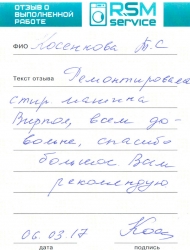 ОТЗЫВ О
ВЫПОЛНЕННОЙ
РАБОТЕ
RSM
service
ФИО Косенкова Т.С
Текст отзыва Ремонтировала
стир. машина
Вирпол, всем до-
вольна, спасибо
большое Вам
рекомендую
06.03.17
дата подпись